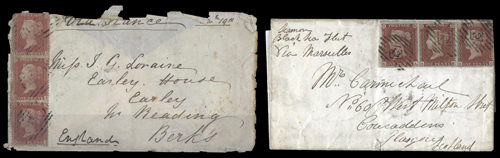 Via France
Miss J. G. Loraine
Earley House
Earley
Nr Reading
Berks
England
Black Sea Fleet
Via Marseilles
Mrs Carmichael
No 69 West Milton Street
Cowcaddens
Glasgow
Scotland